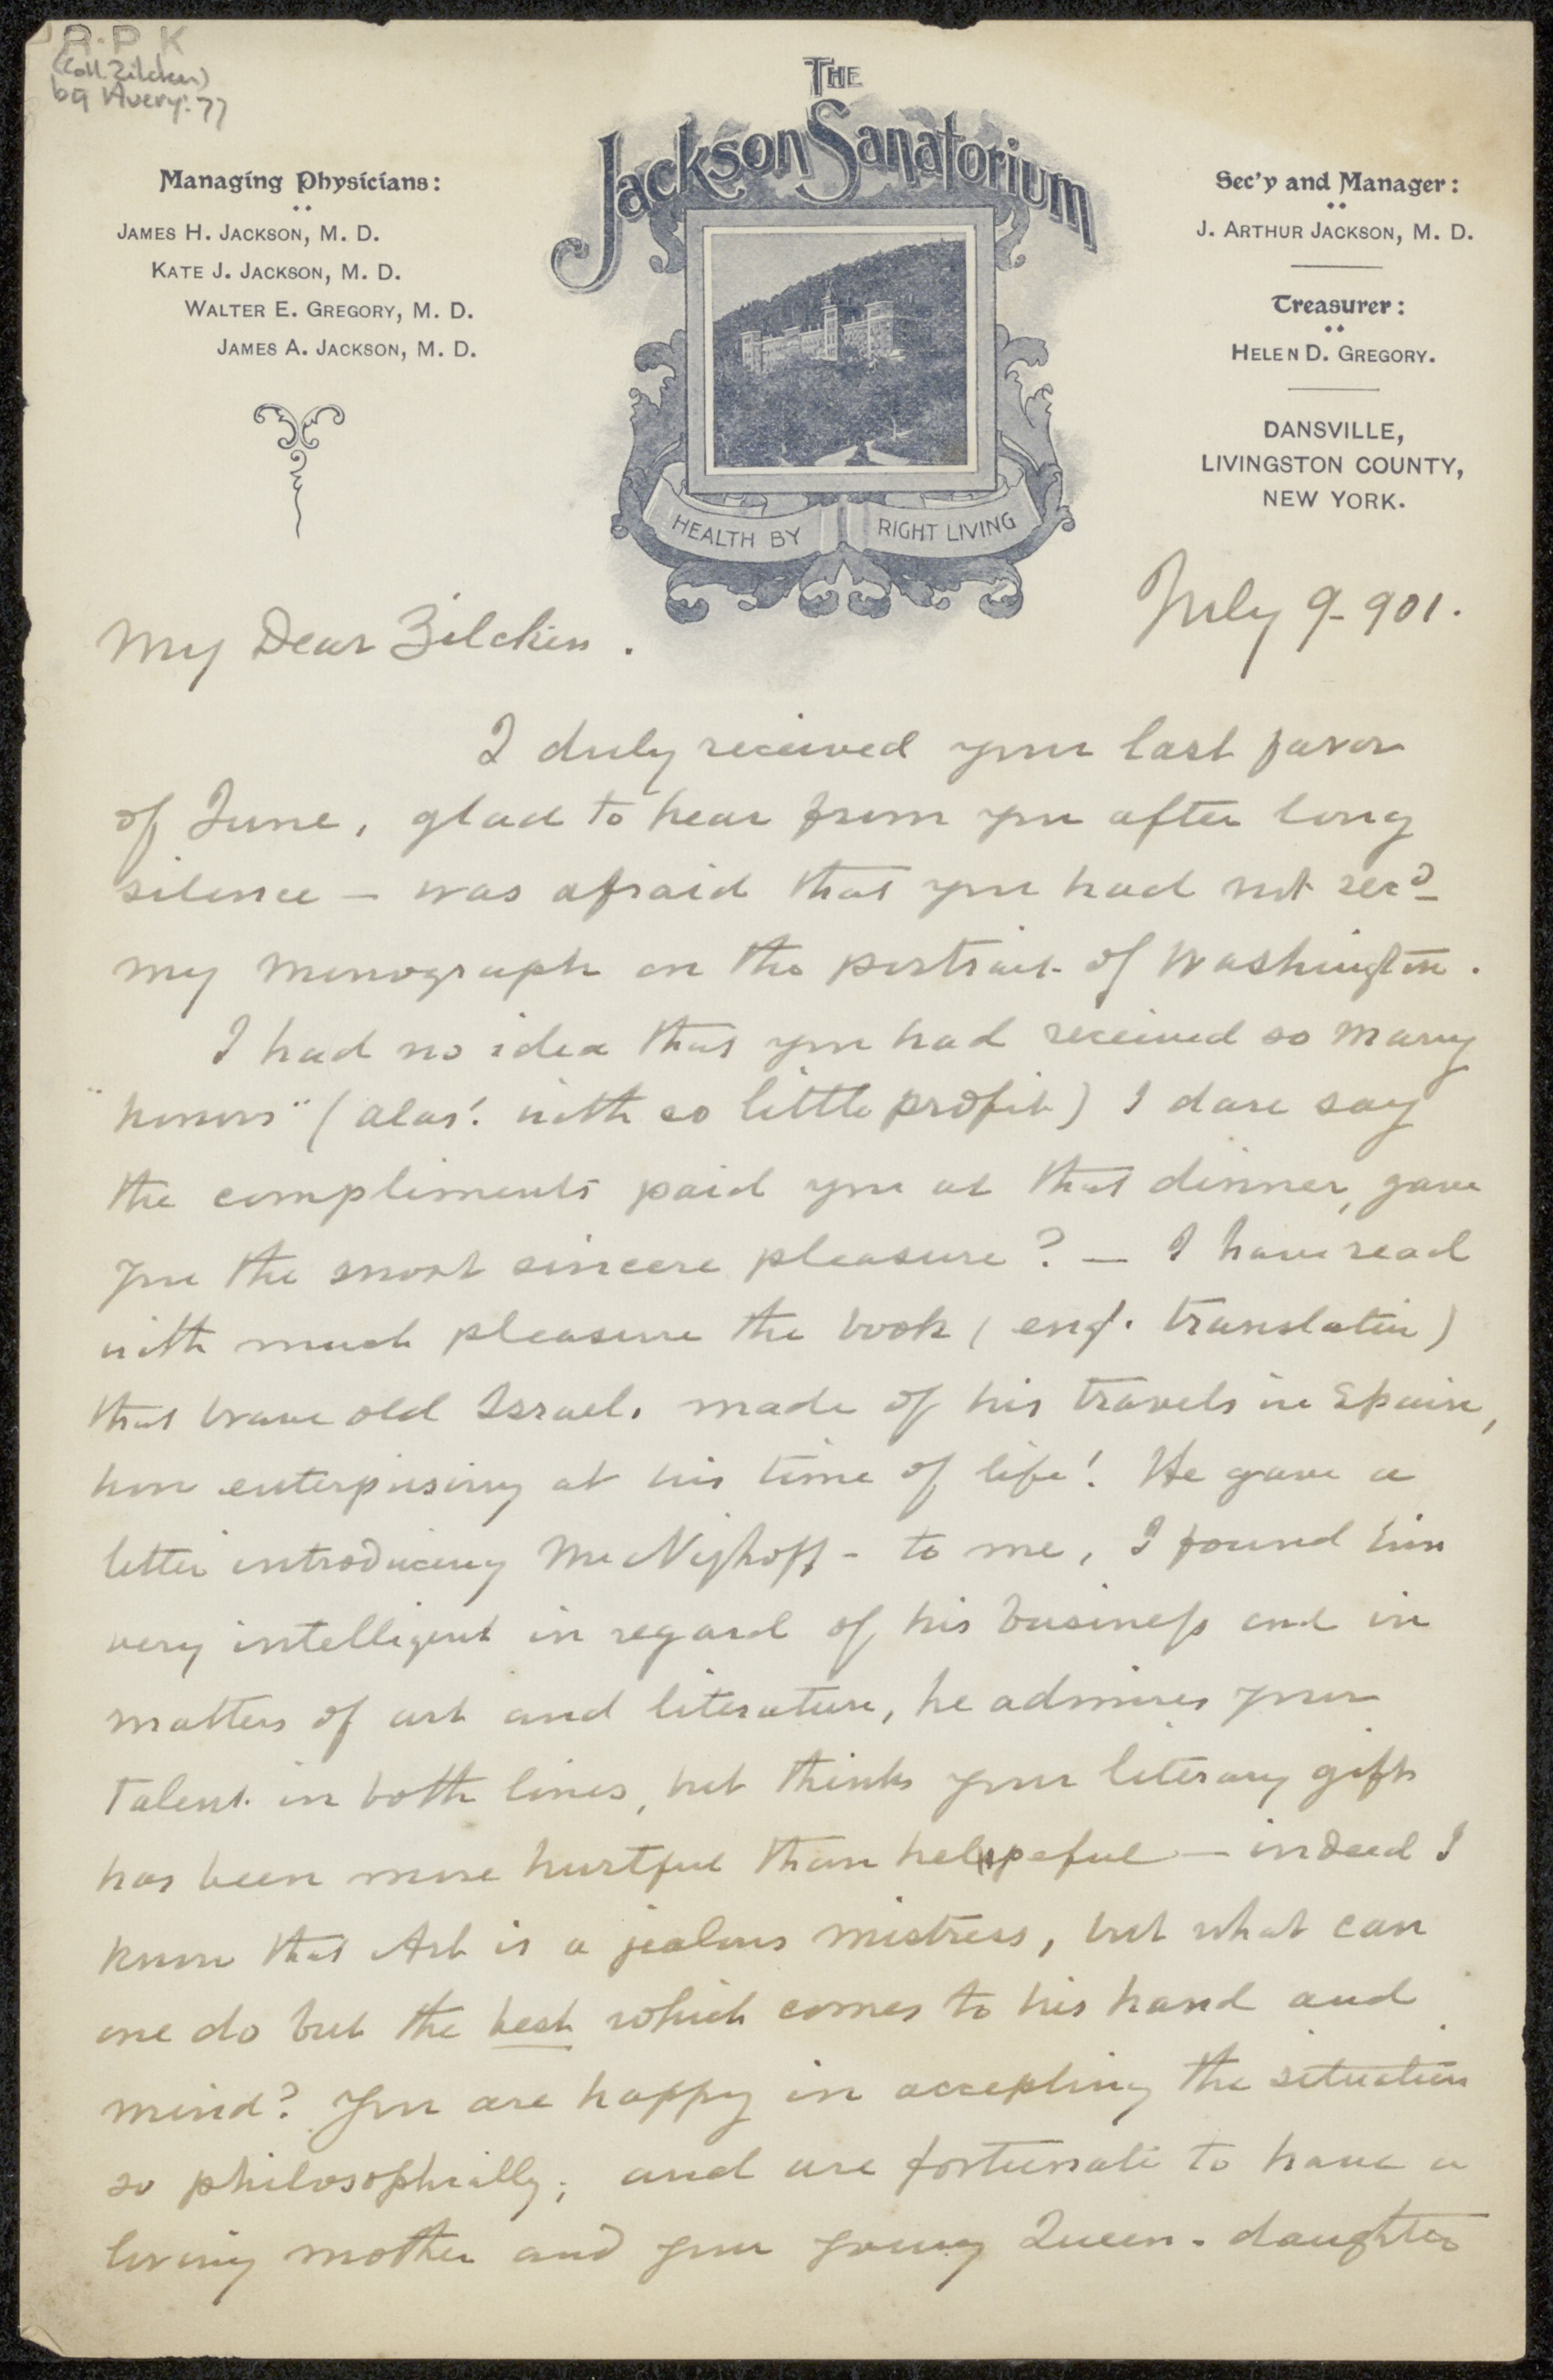 R.P.K
(Coll. Zilcken)
bq Avery: 77
THE
Jackson Sanatorium
Managing Physicians:
JAMES H. JACKSON, M. D.
KATE J. JACKSON, M. D.
WALTER E. GREGORY, M. D.
JAMES A. JACKSON, M. D.
Sec'y and Manager:
J. ARTHUR JACKSON, M. D.
Treasurer:
HELEN D. GREGORY.
DANSVILLE,
LIVINGSTON COUNTY,
NEW YORK.
HEALTH BY RIGHT LIVING
July 9-901.
My Dear Zilcken.
I duly received your last favor
of June, glad to hear from you after long
silence – was afraid that you had not recd
my monograph on the portrait of Washington.
I had no idea that you had received so many
"honors" (alas! with so little profit) I dare say
the compliments paid you at that dinner, gave
you the most sincere pleasure? – I have read
with much pleasure the book (eng. translation)
that brave old Israels made of his travels in Spain,
how enterprising at his time of life! He gave a
letter introducing Mr Nijhoff – to me, I found him
very intelligent in regard of his business and in
matters of art and literature, he admires your
talent in both lines, but thinks your literary gifts
has been more hurtful than helpeful – indeed I
know that Art is a jealous mistress, but what can
one do but the best which comes to his hand and
mind? You are happy in accepting the situation
so philosophially; and are fortunate to have a
loving mother and your young Queen-daughter